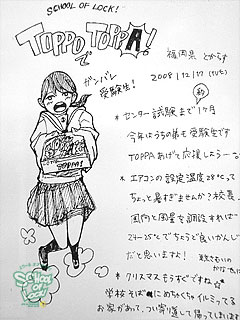 SCHOOL OF LOCK!
TOPPOでTOPPA!
福岡県 とからず
ガンバレ
受験生!
2008/12/17 (TUE)
約
*センター試験まで1ヶ月
今年はうちの弟も受験生です
TOPPAあげて応援しよう〜な
*エアコンの設定温度28℃って
ちょっと暑すぎませんか?校長。
風向と風量を調設すれば
24〜25℃でちょうど良いかんじ
だと思いますが!
*クリスマスもうすぐですね☆
学校そばにめちゃくちゃイルミってる
お家があって、つい寄り道して帰ってしまいます
TOPPA!
School of Lock!